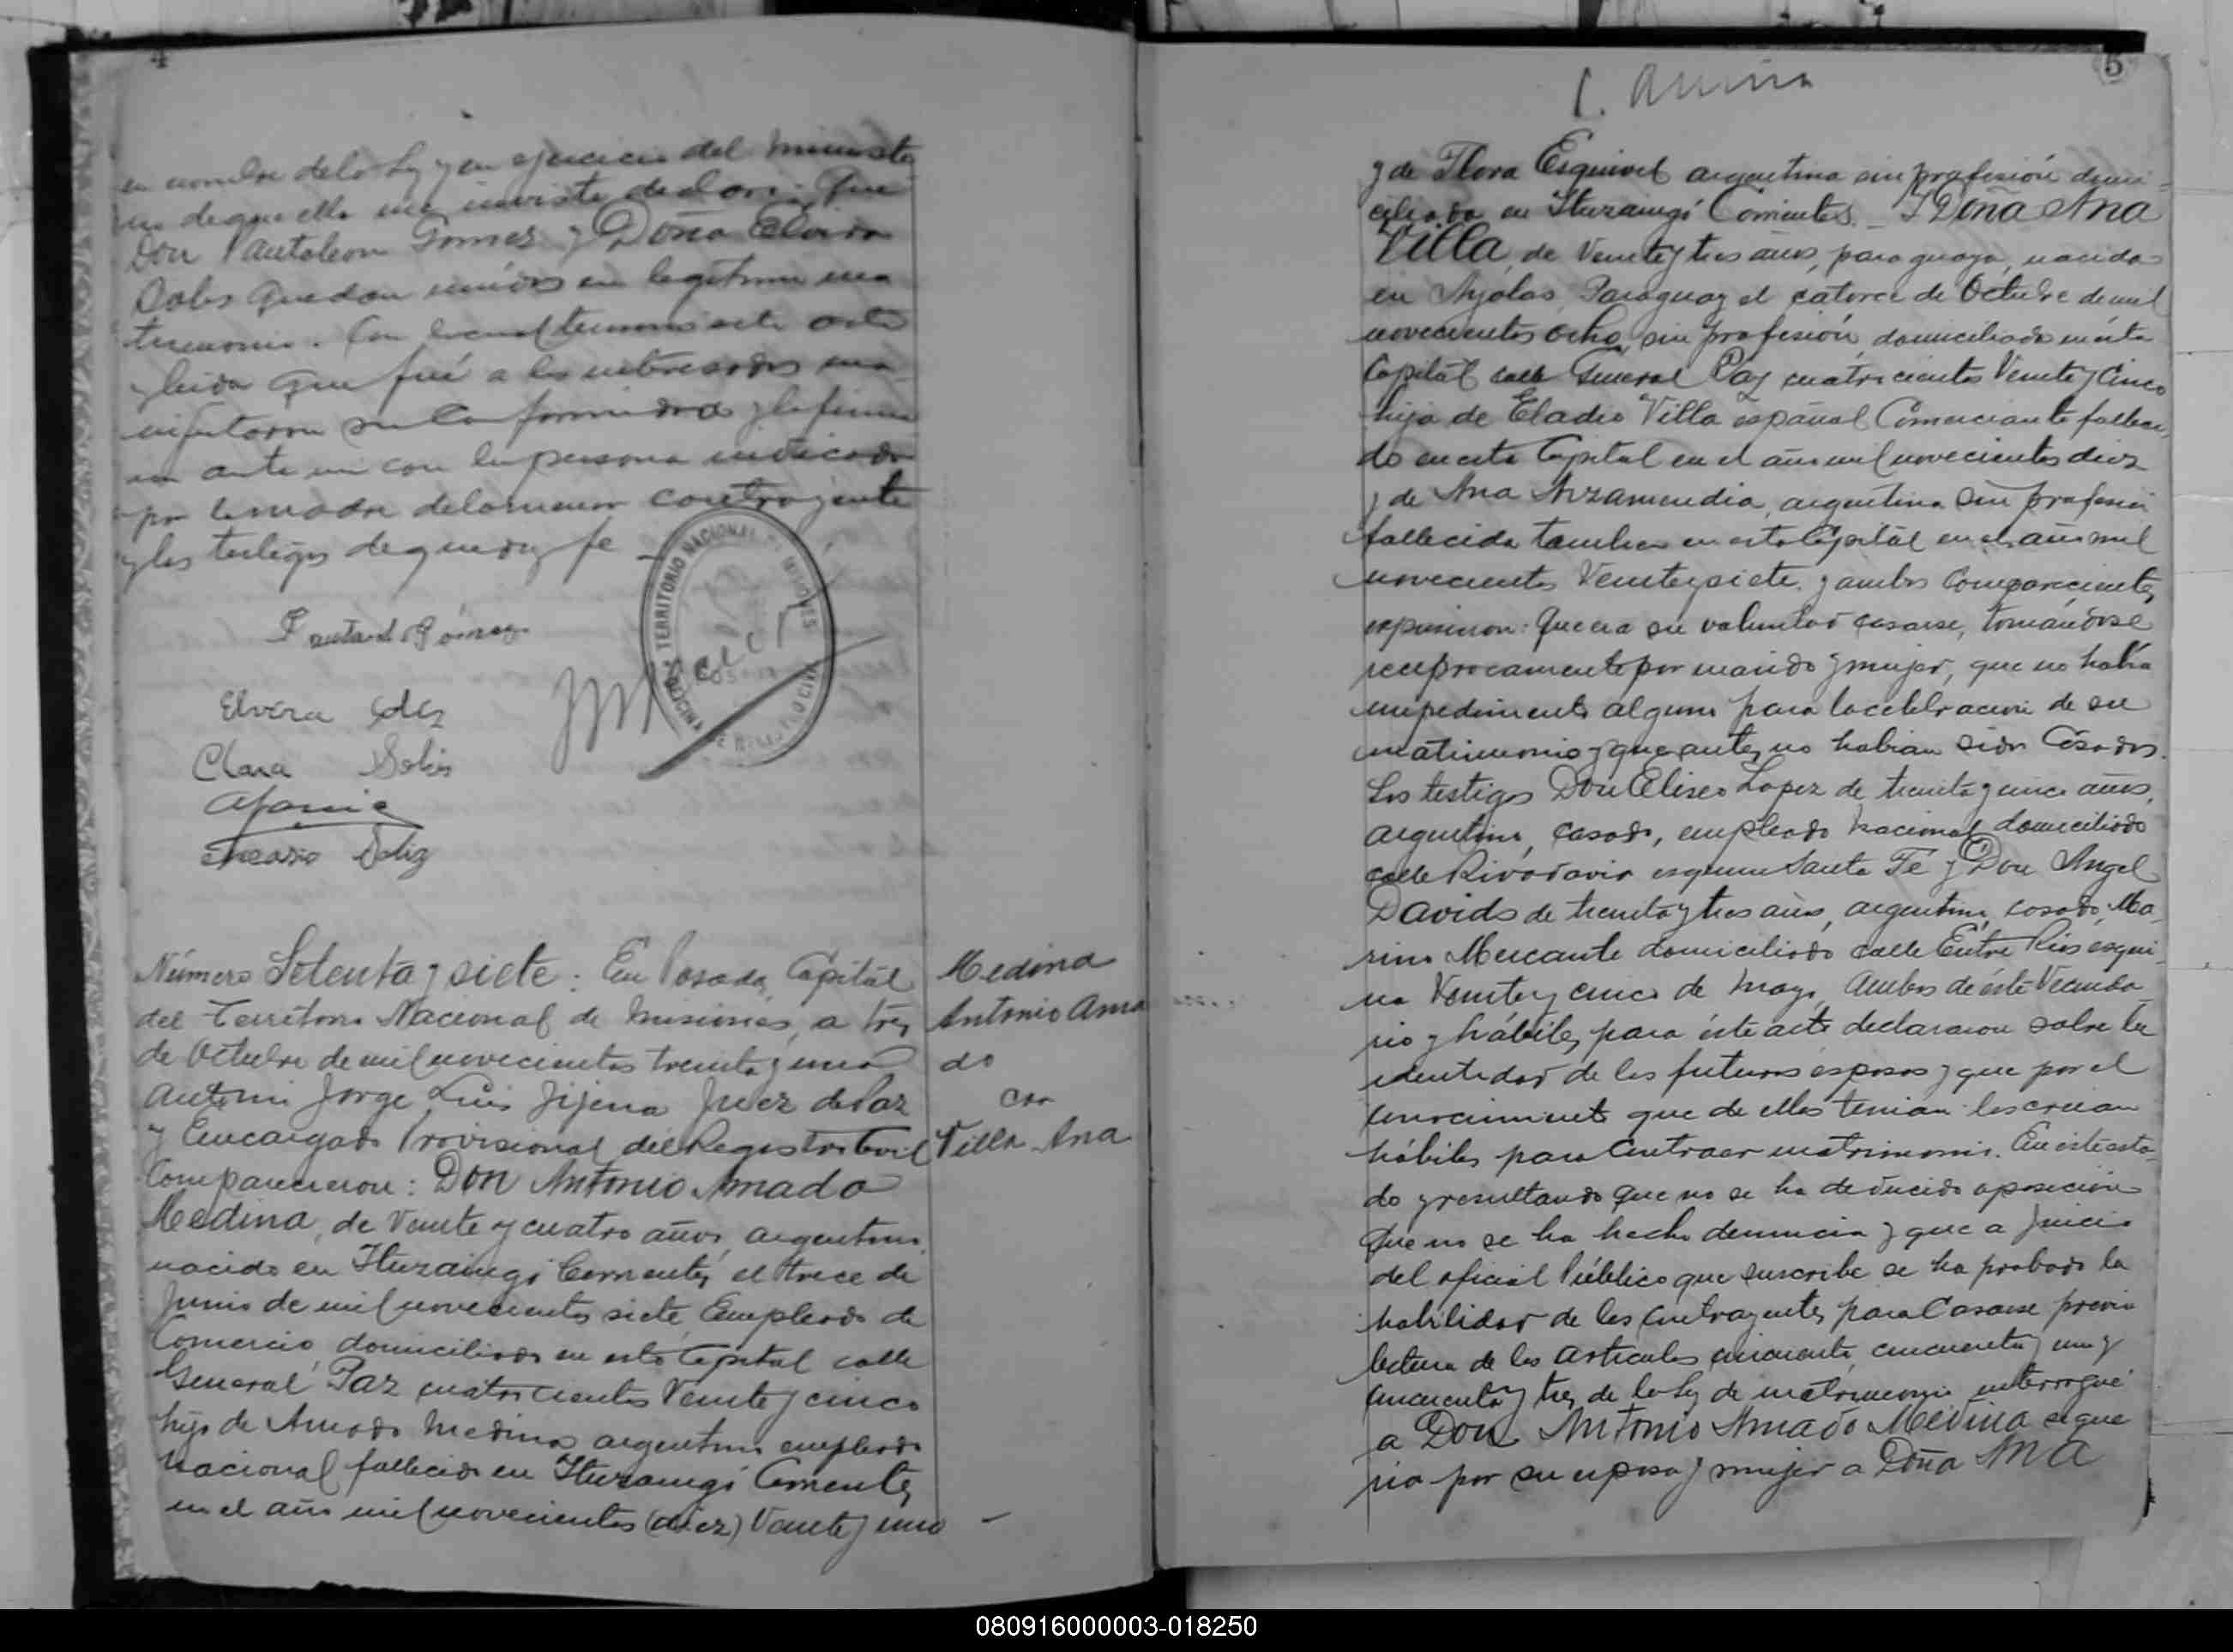 4
en nombre de la Ley y en ejercicio del ministe
rio de que ella me inviste declaro: Que
Don Pantaleon Gomez y Doña Elvira
Solis quedan unidos en legitimo ma
trimonio. Con lo cual termino este acta
y leida que fué a los interesados ma
nifestaron su conformidad y la firma
on ante mi con la persona indicada
por la madre de la menor contrayente
y los testigos de que doy fe
TERRITORIO NACIONAL DE MISIONES
Elvira
Clara Solis
Número Setenta y siete: En Posadas Capital
del Territorio Nacional de Misiones, a tres
de Octubre de mil novecientos treinta y uno
ante mi Jorge Luis Jijena Juez de Paz
y Encargado Provisional del Registro Civil
Comparecieron: Don Antonio Amado
Medina, de Veinte y cuatro años, argentino,
nacido en Ituzaingó Corrientes, el trece de
Junio de mil novecientos siete, Empleado de
Comercio, domiciliado en esta Capital calle
General Paz cuatrocientos Veinte y cinco
hijo de Amado Medina argentino empleado
nacional fallecido en Ituzaingó Corrientes
en el año mil novecientos (diez) Veinte y uno -
Medina
Antonio Ama
do
con
Villa Ana
5
y de Flora Esquivel argentina sin profesión domi-
ciliada en Ituzaingó Corrientes. Y Doña Ana
Villa, de Veinte y tres años, paraguaya, nacida
en Ayolas, Paraguay el catorce de Octubre de mil
novecientos ocho, sin profesión, domiciliada en esta
Capital calle General Paz cuatrocientos Veinte y cinco
hija de Eladio Villa español Comerciante falleci-
do en esta Capital en el año mil novecientos diez
y de Ana Arzamendia, argentina sin profesión
fallecida tambien en esta Capital en el año mil
novecientos Veinte y siete. y ambos Comparecientes
expusieron: Que era su voluntad casarse, tomándose
reciprocamente por marido y mujer, que no había
impedimento alguno para la celebracion de su
matrimonio y que antes no habian sido Casados.
Los testigos Don Eliseo Lopez de treinta y cinco años,
argentino, casado, empleado nacional domiciliado
calle Rivadavia esquina Santa Fé y Don Angel
Davids de treinta y tres años, argentino, casado, Ma-
rino Mercante domiciliado calle Entre Rios esqui-
na Veinte y cinco de Mayo, Ambos de éste Vecinda-
rio y hábiles para éste acto declararon sobre la
identidad de los futuros esposos y que por el
conocimiento que de ellos tenian los creian
hábiles para Contraer matrimonio. En este esta-
do y resultando que no se ha deducido oposición
Que no se ha hecho denuncia y que a Juicio
del oficial Público que suscribe se ha probado la
habilidad de los contrayentes para Casarse previa
lectura de los articulos cincuenta, cincuenta y uno y
cincuenta y tres de la Ley de matrimonio interrogué
a Don Antonio Amado Medina si que
ria por su esposa y mujer a Doña Ana
080916000003-018250